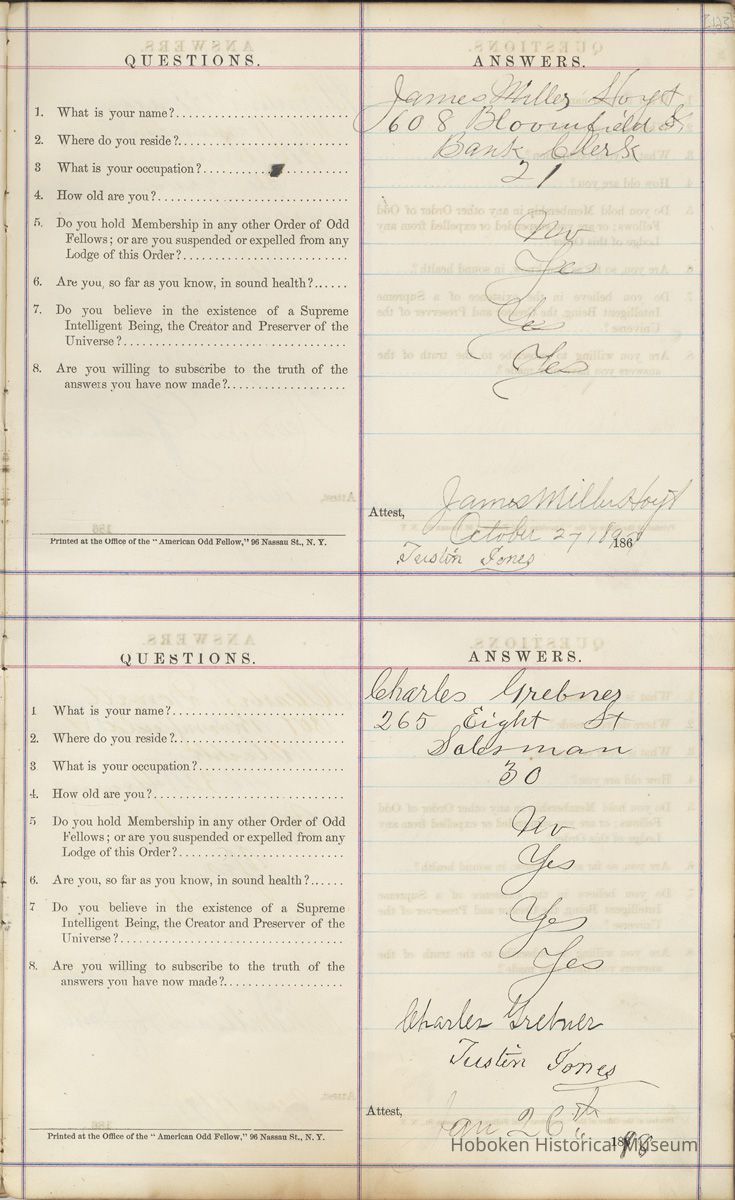 QUESTIONS.
1. What is your name?
2. Where do you reside?
3 What is your occupation?
4. How old are you?
5. Do you hold Membership in any other Order of Odd
Fellows; or are you suspended or expelled from any
Lodge of this Order?
6. Are you, so far as you know, in sound health?
7. Do you believe in the existence of a Supreme
Intelligent Being, the Creator and Preserver of the
Universe?
8. Are you willing to subscribe to the truth of the
answers you have now made?
Printed at the Office of the "American Odd Fellow," 96 Nassau St., N. Y.
ANSWERS.
James Miller Hoyt
608 Bloomfield St,
Bank Clerk
21
No
Yes
Yes
Yes
Attest,
James Miller Hoyt
October 27, 186
Tustin Jones
QUESTIONS.
1 What is your name?
2. Where do you reside?
3 What is your occupation?
4. How old are you?
5 Do you hold Membership in any other Order of Odd
Fellows; or are you suspended or expelled from any
Lodge of this Order?
6. Are you, so far as you know, in sound health?
7 Do you believe in the existence of a Supreme
Intelligent Being, the Creator and Preserver of the
Universe?
8. Are you willing to subscribe to the truth of the
answers you have now made?
Printed at the Office of the "American Odd Fellow," 96 Nassau St., N. Y.
ANSWERS.
Charles Grebner
265 Eight St
Salesman
30
No
Yes
Yes
Yes
Charles Grebner
Tustin Jones
Attest,
Jan 26th
98
Hoboken Historical Museum